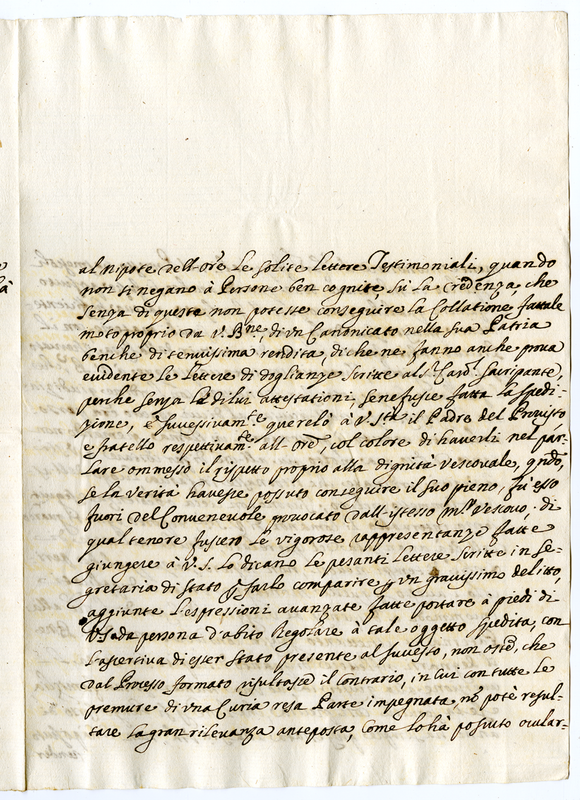 al Nipote dell'Ore le solite lettere Testimoniali, quando
non si negano à Persone ben cognite, sù la credenza, che
senza di queste non potesse conseguire la Collatione fattale
moto proprio da V. Bne, di un Canonicato nella sua Patria
benche di tenuissima rendita, di che ne fanno anche prova
evidente le lettere di doglianze scritte al Sr. Card. Sacripante,
perche senza le di lui attestationi, se ne fusse fatta la spedi-
zione, e successivamte querelò à V. Stà il Padre del Provisto
e fratello respettivamte all'Ore, col colore di haverli nel par-
lare ommesso il rispetto proprio alla dignità Vescovale, qndo,
se la verità havesse possuto conseguire il suo pieno, fù esso
fuori del Convenevole provocato dall'istesso Mr. Vescovo. di
qual tenore fussero le vigorose rappresentanze fatte
giungere à V. S. lo dicano le pesanti lettere scritte in Se-
gretaria di Stato p farlo comparire p un gravissimo delitto,
aggiunte l'espressioni avanzate fatte portare à piedi di
V. S. da persona d'abito Regolare à tale oggetto spedita, con
l'assertiva di esser stato presente al successo, non oste, che
dal Processo formato risultasse il contrario, in cui con tutte le
premure di una Curia resa Parte impegnata, nō potè resul-
tare la gran rilevanza anteposta, come lo hà possuto ocular-